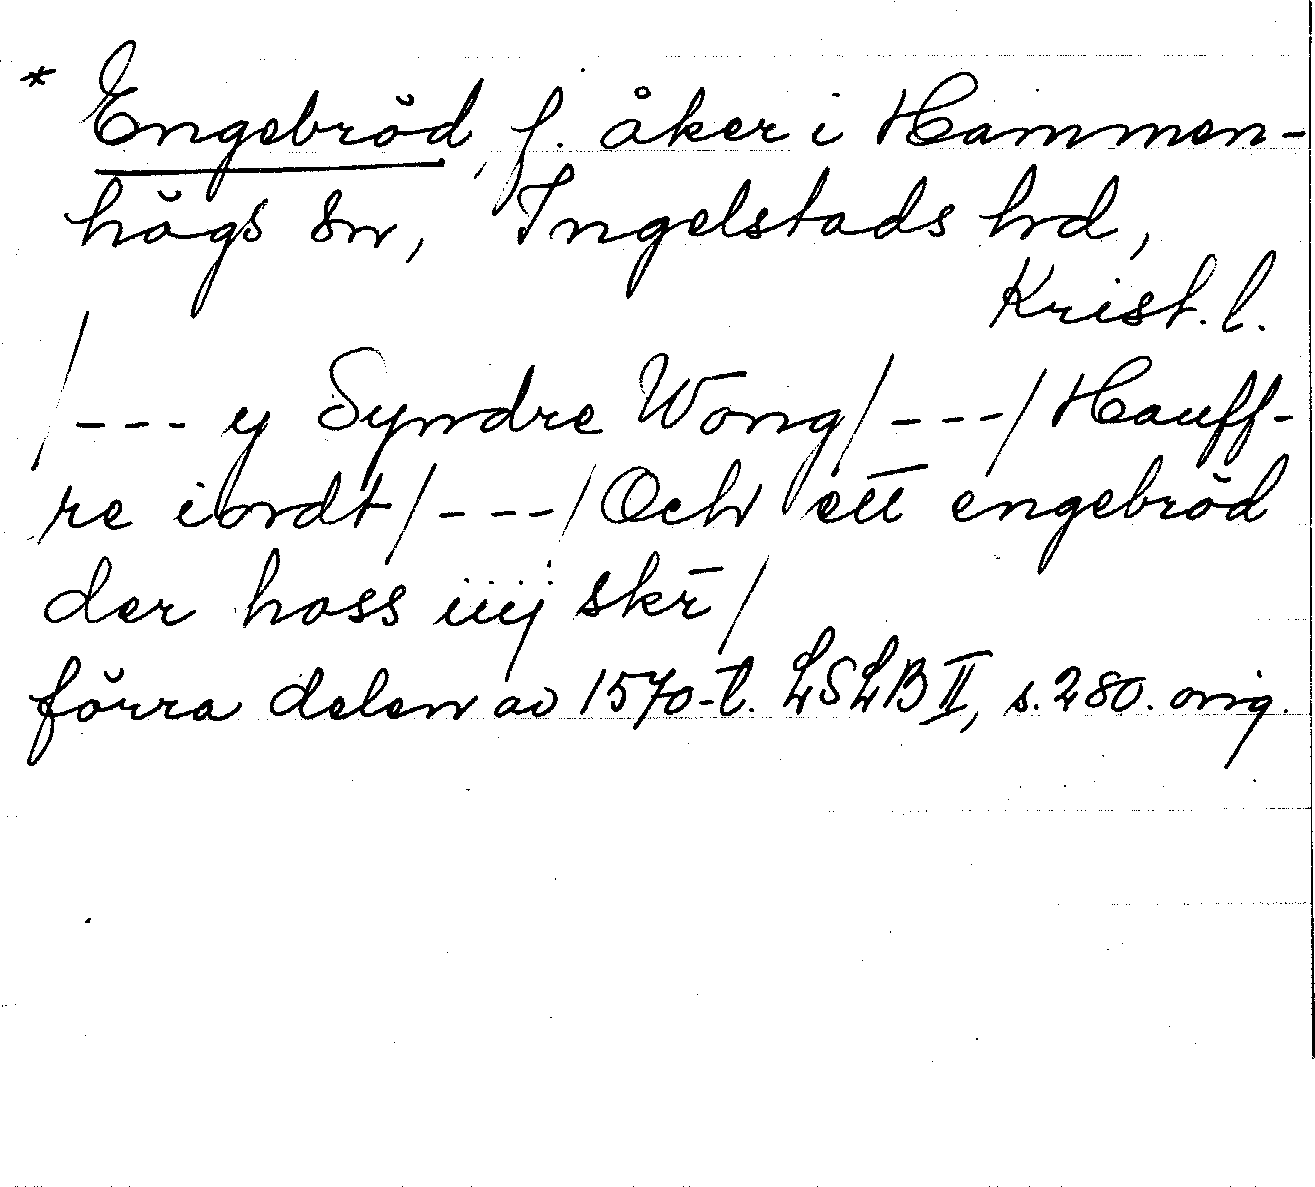 * Engebröd, f. åker i Hammen-
högs sn, Ingelstads hd,
Krist. l.
/--- y Syndre Wong/---/Hauff-
re iordt/---/Och ett engebröd
der hoss iiij skr̄/
förra delen av 1570-t. LSLB II, s. 280. orig.